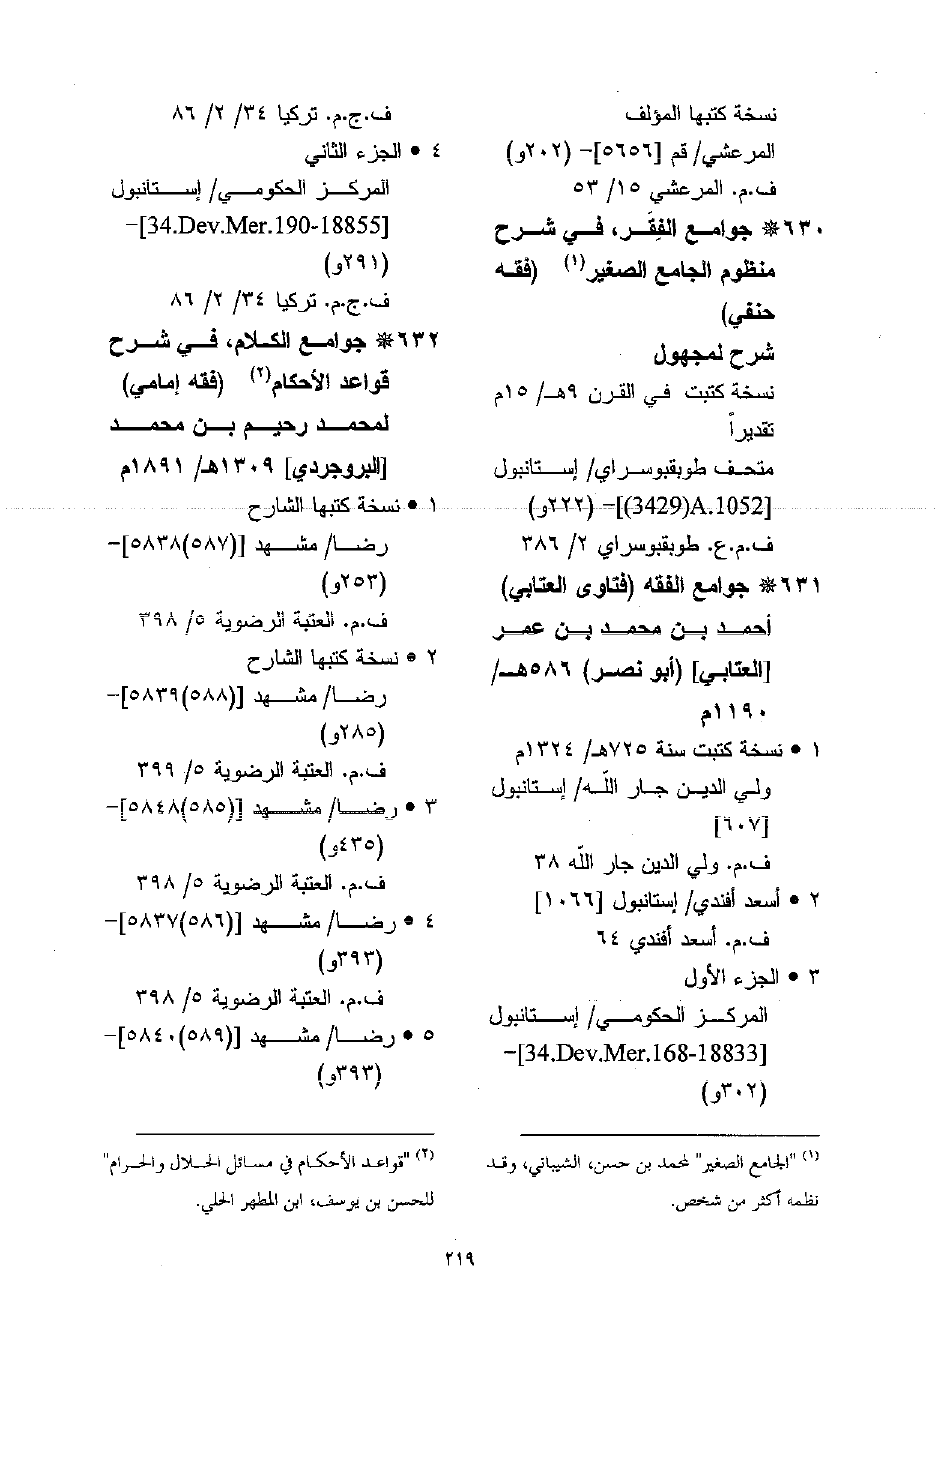 نسخة كتبها المؤلف
المرعشي/ قم [٥٦٥٦]– (٢٠٢و)
ف.م. المرعشي ١٥/ ٥٣
٦٣٠※ جوامع الفِقَر، في شرح
منظوم الجامع الصغير(١) (فقه
حنفي)
شرح لمجهول
نسخة كتبت في القرن ٩هـ/ ١٥م
تقديراً
متحف طوبقبوسراي/ إستانبول
[A.1052(3429)]– (٢٢٢و)
ف.م.ع. طوبقبوسراي ٢/ ٣٨٦
٦٣١※ جوامع الفقه (فتاوى العتابي)
أحمد بن محمد بن عمر
[العتابي] (أبو نصر) ٥٨٦هـ/
١١٩٠م
١ • نسخة كتبت سنة ٧٢٥هـ/ ١٣٢٤م
ولي الدين جار اللّه/ إستانبول
[٦٠٧]
ف.م. ولي الدين جار اللّه ٣٨
٢ • أسعد أفندي/ إستانبول [١٠٦٦]
ف.م. أسعد أفندي ٦٤
٣ • الجزء الأول
المركز الحكومي/ إستانبول
[34.Dev.Mer.168-18833]–
(٣٠٢و)
(١) "الجامع الصغير" لمحمد بن حسن، الشيباني، وقد
نظمه أكثر من شخص.
ف.ج.م. تركيا ٣٤/ ٢/ ٨٦
٤ • الجزء الثاني
المركز الحكومي/ إستانبول
[34.Dev.Mer.190-18855]–
(٢٩١و)
ف.ج.م. تركيا ٣٤/ ٢/ ٨٦
٦٣٢※ جوامع الكلام، في شرح
قواعد الأحكام(٢) (فقه إمامي)
لمحمد رحيم بن محمد
[البروجردي] ١٣٠٩هـ/ ١٨٩١م
١ • نسخة كتبها الشارح
رضا/ مشهد [(٥٨٧)٥٨٣٨]–
(٢٥٣و)
ف.م. العتبة الرضوية ٥/ ٣٩٨
٢ • نسخة كتبها الشارح
رضا/ مشهد [(٥٨٨)٥٨٣٩]–
(٢٨٥و)
ف.م. العتبة الرضوية ٥/ ٣٩٩
٣ • رضا/ مشهد [(٥٨٥)٥٨٤٨]–
(٤٣٥و)
ف.م. العتبة الرضوية ٥/ ٣٩٨
٤ • رضا/ مشهد [(٥٨٦)٥٨٣٧]–
(٣٩٣و)
ف.م. العتبة الرضوية ٥/ ٣٩٨
٥ • رضا/ مشهد [(٥٨٩)٥٨٤٠]–
(٣٩٣و)
(٢) "قواعد الأحكام في مسائل الحلال والحرام"
للحسن بن يوسف، ابن المطهر الحلي.
٢١٩